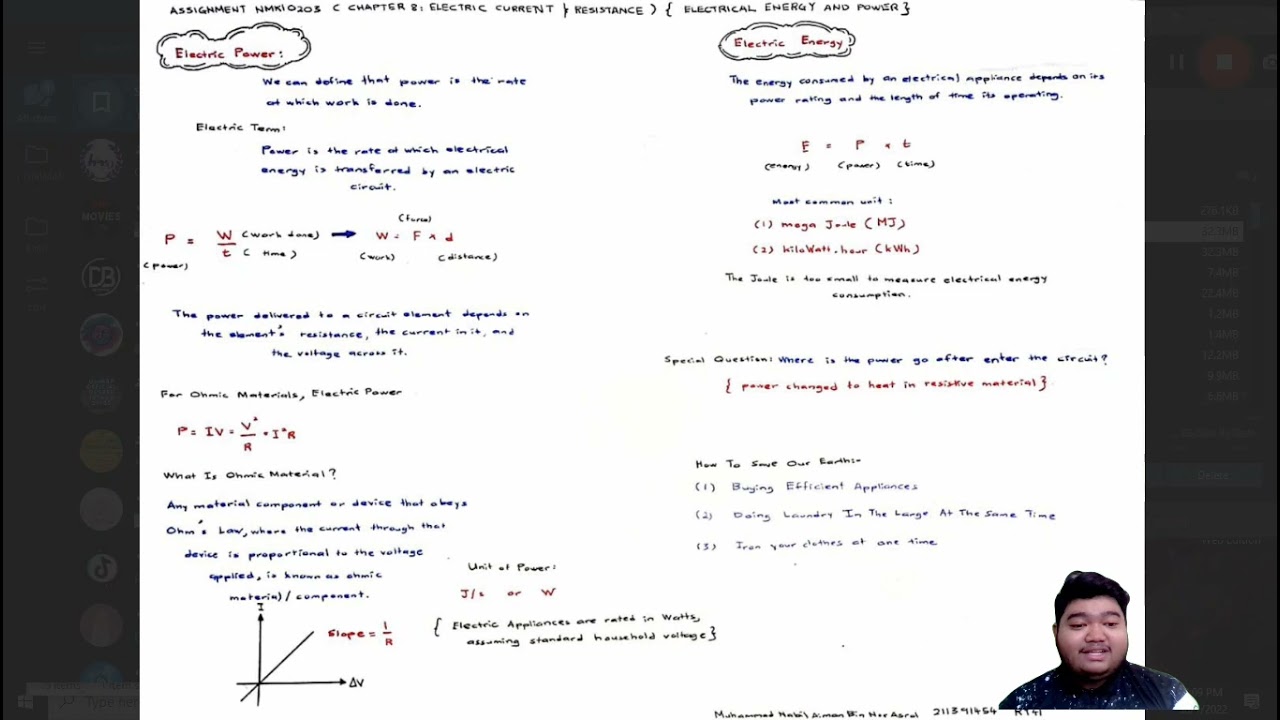 ASSIGNMENT NMK10203 ( CHAPTER 8: ELECTRIC CURRENT & RESISTANCE ) { ELECTRICAL ENERGY AND POWER }
Electric Power:
We can define that power is the rate
at which work is done.
Electric Term:
Power is the rate at which electrical
energy is transferred by an electric
circuit.
(force)
P = W (work done) → W = F x d
t ( time )
(power) (work) (distance)
The power delivered to a circuit element depends on
the element's resistance, the current in it, and
the voltage across it.
For Ohmic Materials, Electric Power
P = IV = V² / R = I²R
What Is Ohmic Material?
Any material component or device that obeys
Ohm's Law, where the current through that
device is proportional to the voltage
applied, is known as ohmic
material / component.
I
Slope = 1/R
ΔV
Unit of Power:
J/s or W
{ Electric Appliances are rated in Watts,
assuming standard household voltage }
Electric Energy
The energy consumed by an electrical appliance depends on its
power rating and the length of time its operating.
E = P x t
(energy) (power) (time)
Most common unit :
(1) mega Joule (MJ)
(2) kiloWatt.hour (kWh)
The Joule is too small to measure electrical energy
consumption.
Special Question: Where is the power go after enter the circuit?
{ power changed to heat in resistive material }
How To Save Our Earth:-
(1) Buying Efficient Appliances
(2) Doing Laundry In The Large At The Same Time
(3) Iron your clothes at one time
Muhammad Nabil Aiman Bin Nor Asral 211391454 RY41
MOVIES
DB
32.3MB
7.4MB
22.4MB
12.2MB
9.9MB
Delete
Type here